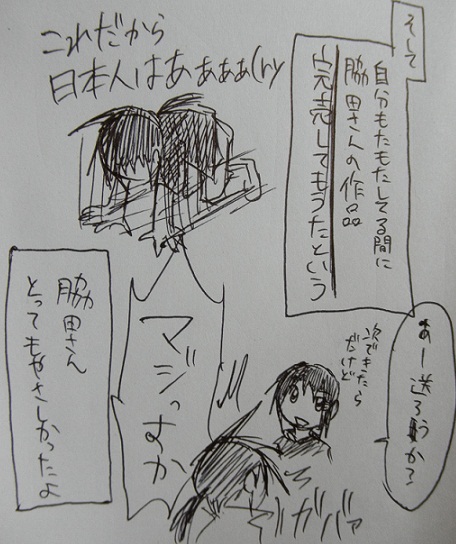 そして
自分もたもたしてる間に
脇田さんの作品
完売してもうたという
これだから
日本人はあぁぁぁ(ry
あー送ろうか?
次できたら
だけど
ガバァ
マジっすか
脇田さん
とってもやさしかったよ